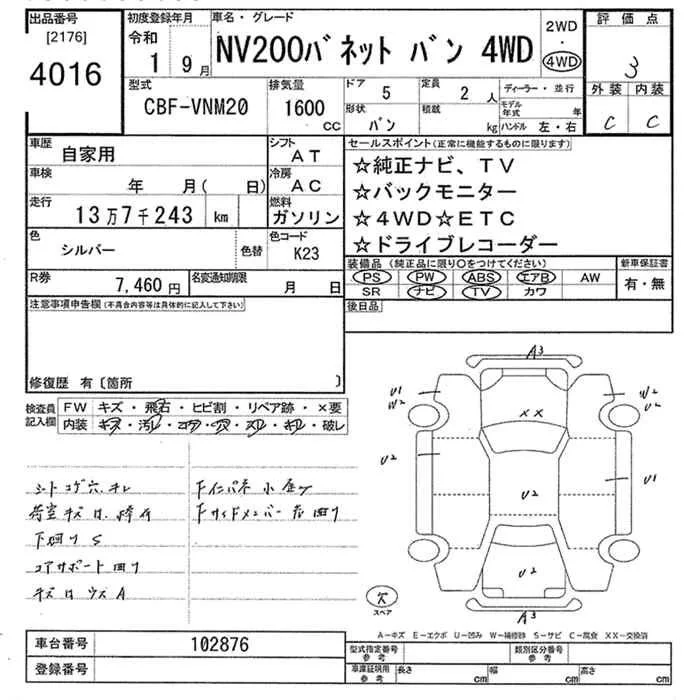 出品番号
[2176]
4016
初度登録年月
令和
1 9月
車名・グレード
NV200バネット バン 4WD
2WD
・
4WD
評価点
3
外装 内装
C C
型式
CBF-VNM20
排気量
1600
CC
ドア 5
形状 バン
定員 2 人
積載 kg
ディーラー・並行
モデル年式 年
ハンドル 左・右
車歴 自家用
シフト AT
車検 年 月( 日)
冷房 AC
走行 13万7千243 km
燃料 ガソリン
色 シルバー 色替
色コード K23
R券 7,460円
名変通知期限 月 日
セールスポイント(正常に機能するものに限ります)
☆純正ナビ、TV
☆バックモニター
☆4WD☆ETC
☆ドライブレコーダー
装備品(純正品に限り〇をつけてください)
PS PW ABS エアB AW
SR ナビ TV カワ
新車保証書
有・無
後日品
注意事項申告欄(不具合内容等は具体的に記入して下さい)
修復歴 有〔箇所 〕
検査員記入欄
FW キズ・飛石・ヒビ割・リペア跡・×要
内装 キズ・汚レ・コゲ・穴・スレ・キレ・破レ
シート コゲ穴、キレ
下回り S
コアサポート 凹り
A3
U1
W2
W2
U2
XX
U2
U1
U2
U2
A3
スペア
A-キズ E-エクボ U-凹み W-補修跡 S-サビ C-腐食 XX-交換済
車台番号 102876
登録番号
型式指定番号 参考
類別区分番号 参考
車庫証明用 参考
長さ cm
幅 cm
高さ cm